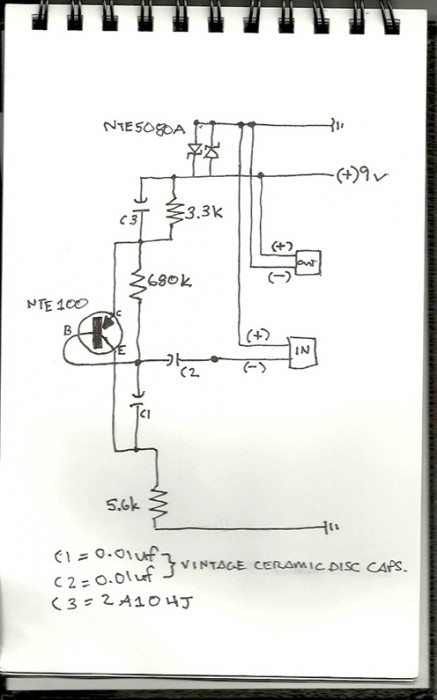 NTE5080A
(+)9v
C3
3.3K
(+)
OUT
(-)
680K
NTE100
C
B
E
(+)
IN
(-)
C2
C1
5.6K
C1 = 0.01uf
C2 = 0.01uf } VINTAGE CERAMIC DISC CAPS.
C3 = 2A104J